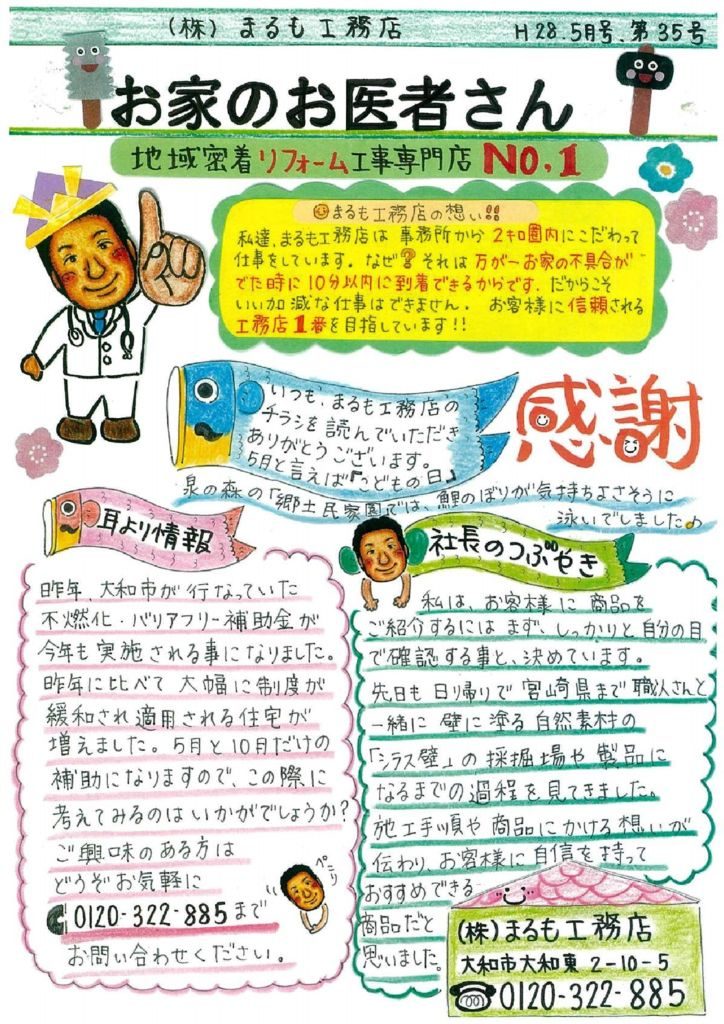 (株) まるも工務店
H28.5月号.第35号
お家のお医者さん
地域密着リフォーム工事専門店 NO.1
まるも工務店の想い!!
私達、まるも工務店は 事務所から 2キロ圏内にこだわって
仕事をしています。なぜ? それは 万が一お家の不具合が
でた時に 10分以内に到着できるからです. だからこそ
いい加減な仕事はできません. お客様に信頼される
工務店1番を目指しています!!
いつも、まるも工務店の
チラシを読んでいただき
ありがとうございます。
5月と言えば『こどもの日』
感謝
泉の森の「郷土民家園」では、鯉のぼりが気持ちよさそうに
泳いでしました♪
耳より情報
昨年、大和市が行なっていた
不燃化・バリアフリー補助金が
今年も実施される事になりました。
昨年に比べて 大幅に制度が
緩和され適用される住宅が
増えました。5月と10月だけの
補助になりますので、この際に
考えてみるのはいかがでしょうか?
ご興味のある方は
どうぞお気軽に
0120-322-885まで
お問い合わせください。
ペコリ
社長のつぶやき
私は、お客様に商品を
ご紹介するには まず、しっかりと自分の目
で確認する事と、決めています。
先日も日帰りで 宮崎県まで職人さんと
一緒に 壁に塗る自然素材の
「シラス壁」の採掘場や製品に
なるまでの過程を見てきました。
施工手順や商品にかける想いが
伝わり、お客様に自信を持って
おすすめできる
商品だと
思いました。
(株)まるも工務店
大和市大和東 2-10-5
0120-322-885